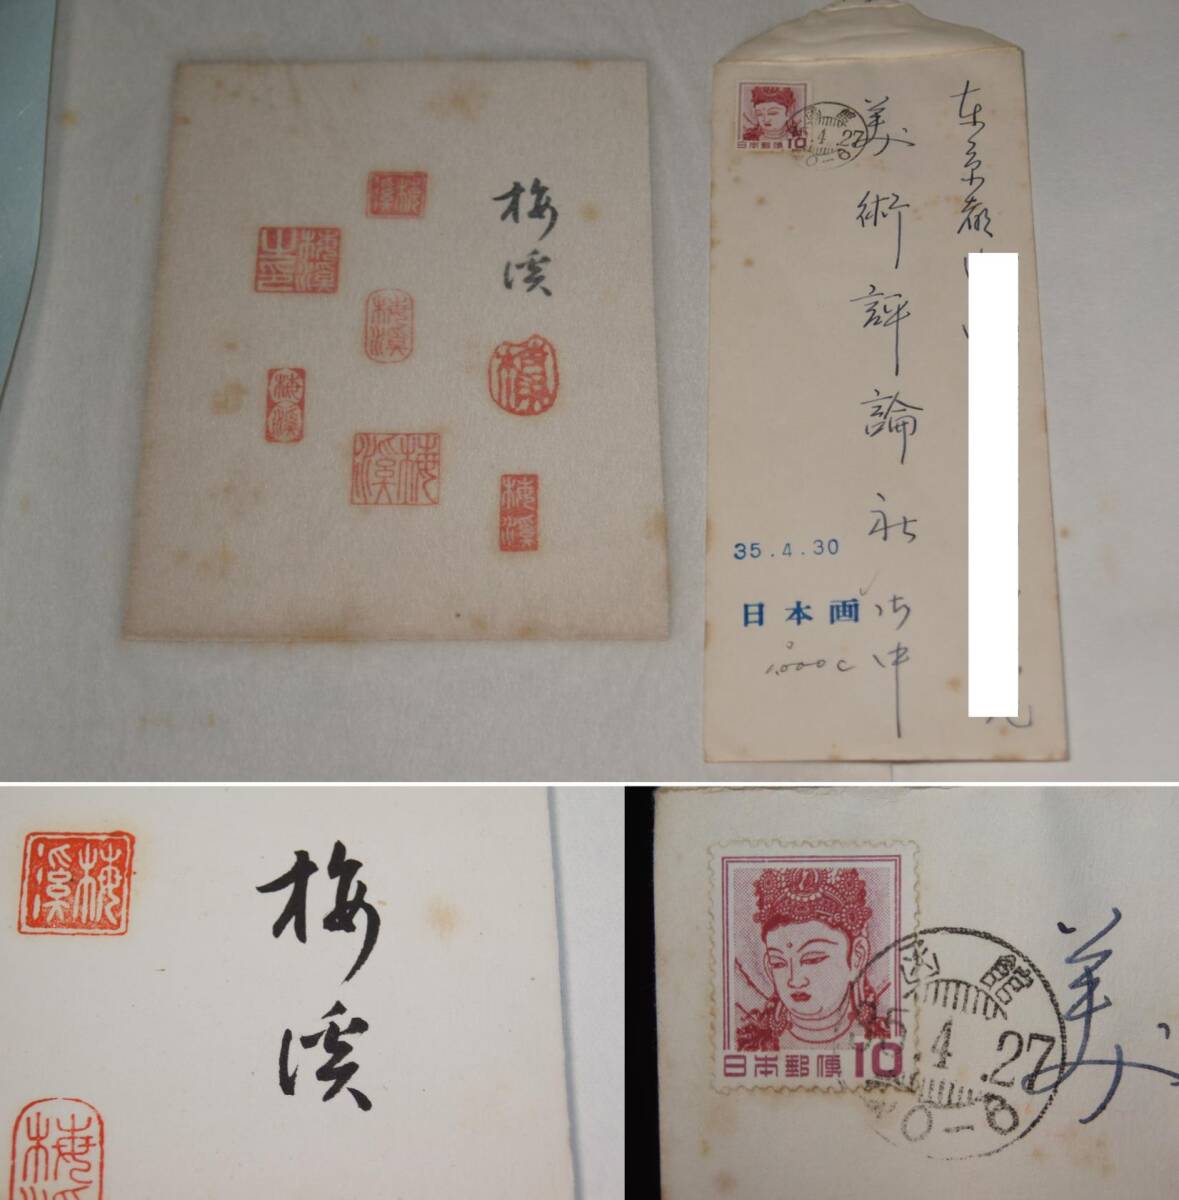 梅溪
梅溪
梅溪之印
梅溪
梅
梅溪
梅溪
梅溪
東京都
美術評論社御中
日本郵便 10
4 27
35.4.30
日本画
梅溪
梅溪
梅
日本郵便 10
函館
35.4.27
0-6
美